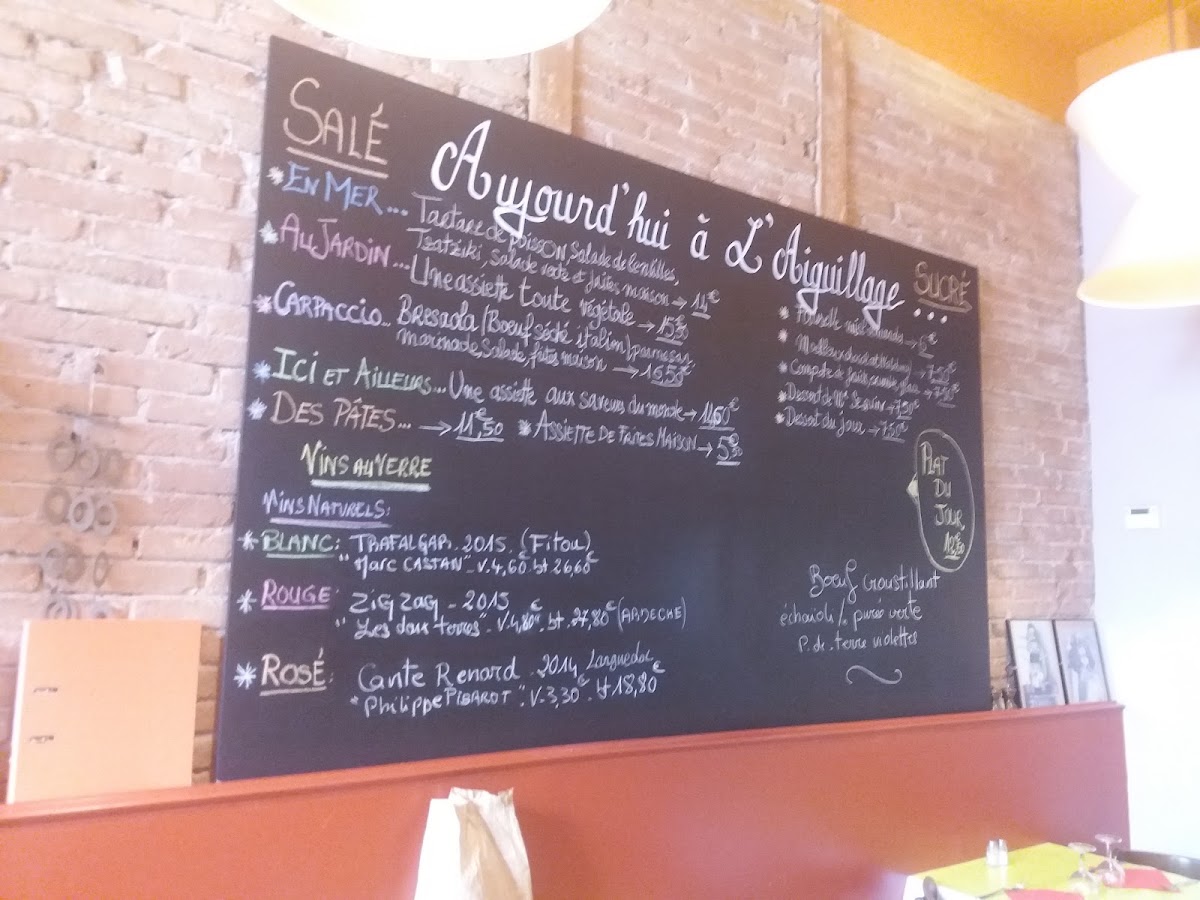 SALÉ
Aujourd'hui à L'Aiguillage ...
SUCRÉ
* EN MER... Tartare de poisson, Salade de lentilles,
Tzatziki, salade verte et frites maison → 14€
* AU JARDIN... Une assiette toute végétale → 15,50€
* CARPACCIO... BRESAOLA (Boeuf séché italien) parmesan
marinade, salade, frites maison → 16,50€
* ICI ET AILLEURS... Une assiette aux saveurs du monde → 14,50€
* DES PÂTES... → 11,50€
* ASSIETTE DE FRITES MAISON → 5,50€
* → 6€
* → 7,50€
* Compote de → 7,50€
* Dessert de → 7,50€
* Dessert du jour → 7,50€
PLAT
DU
JOUR
12,50
Boeuf croustillant
purée verte
P. de terre violettes
VINS AU VERRE
VINS NATURELS:
* BLANC: TRAFALGAR. 2015. (Fitou)
"Marc CASTAN". V. 4,60 bt 26,60€
* ROUGE: ZIG ZAG - 2015
"Les deux terres". V. 4,80€. bt. 27,80€ (ARDECHE)
* ROSÉ: Cante Renard. 2014 Languedoc
"Philippe PIBAROT". V. 3,30€. bt 18,80€